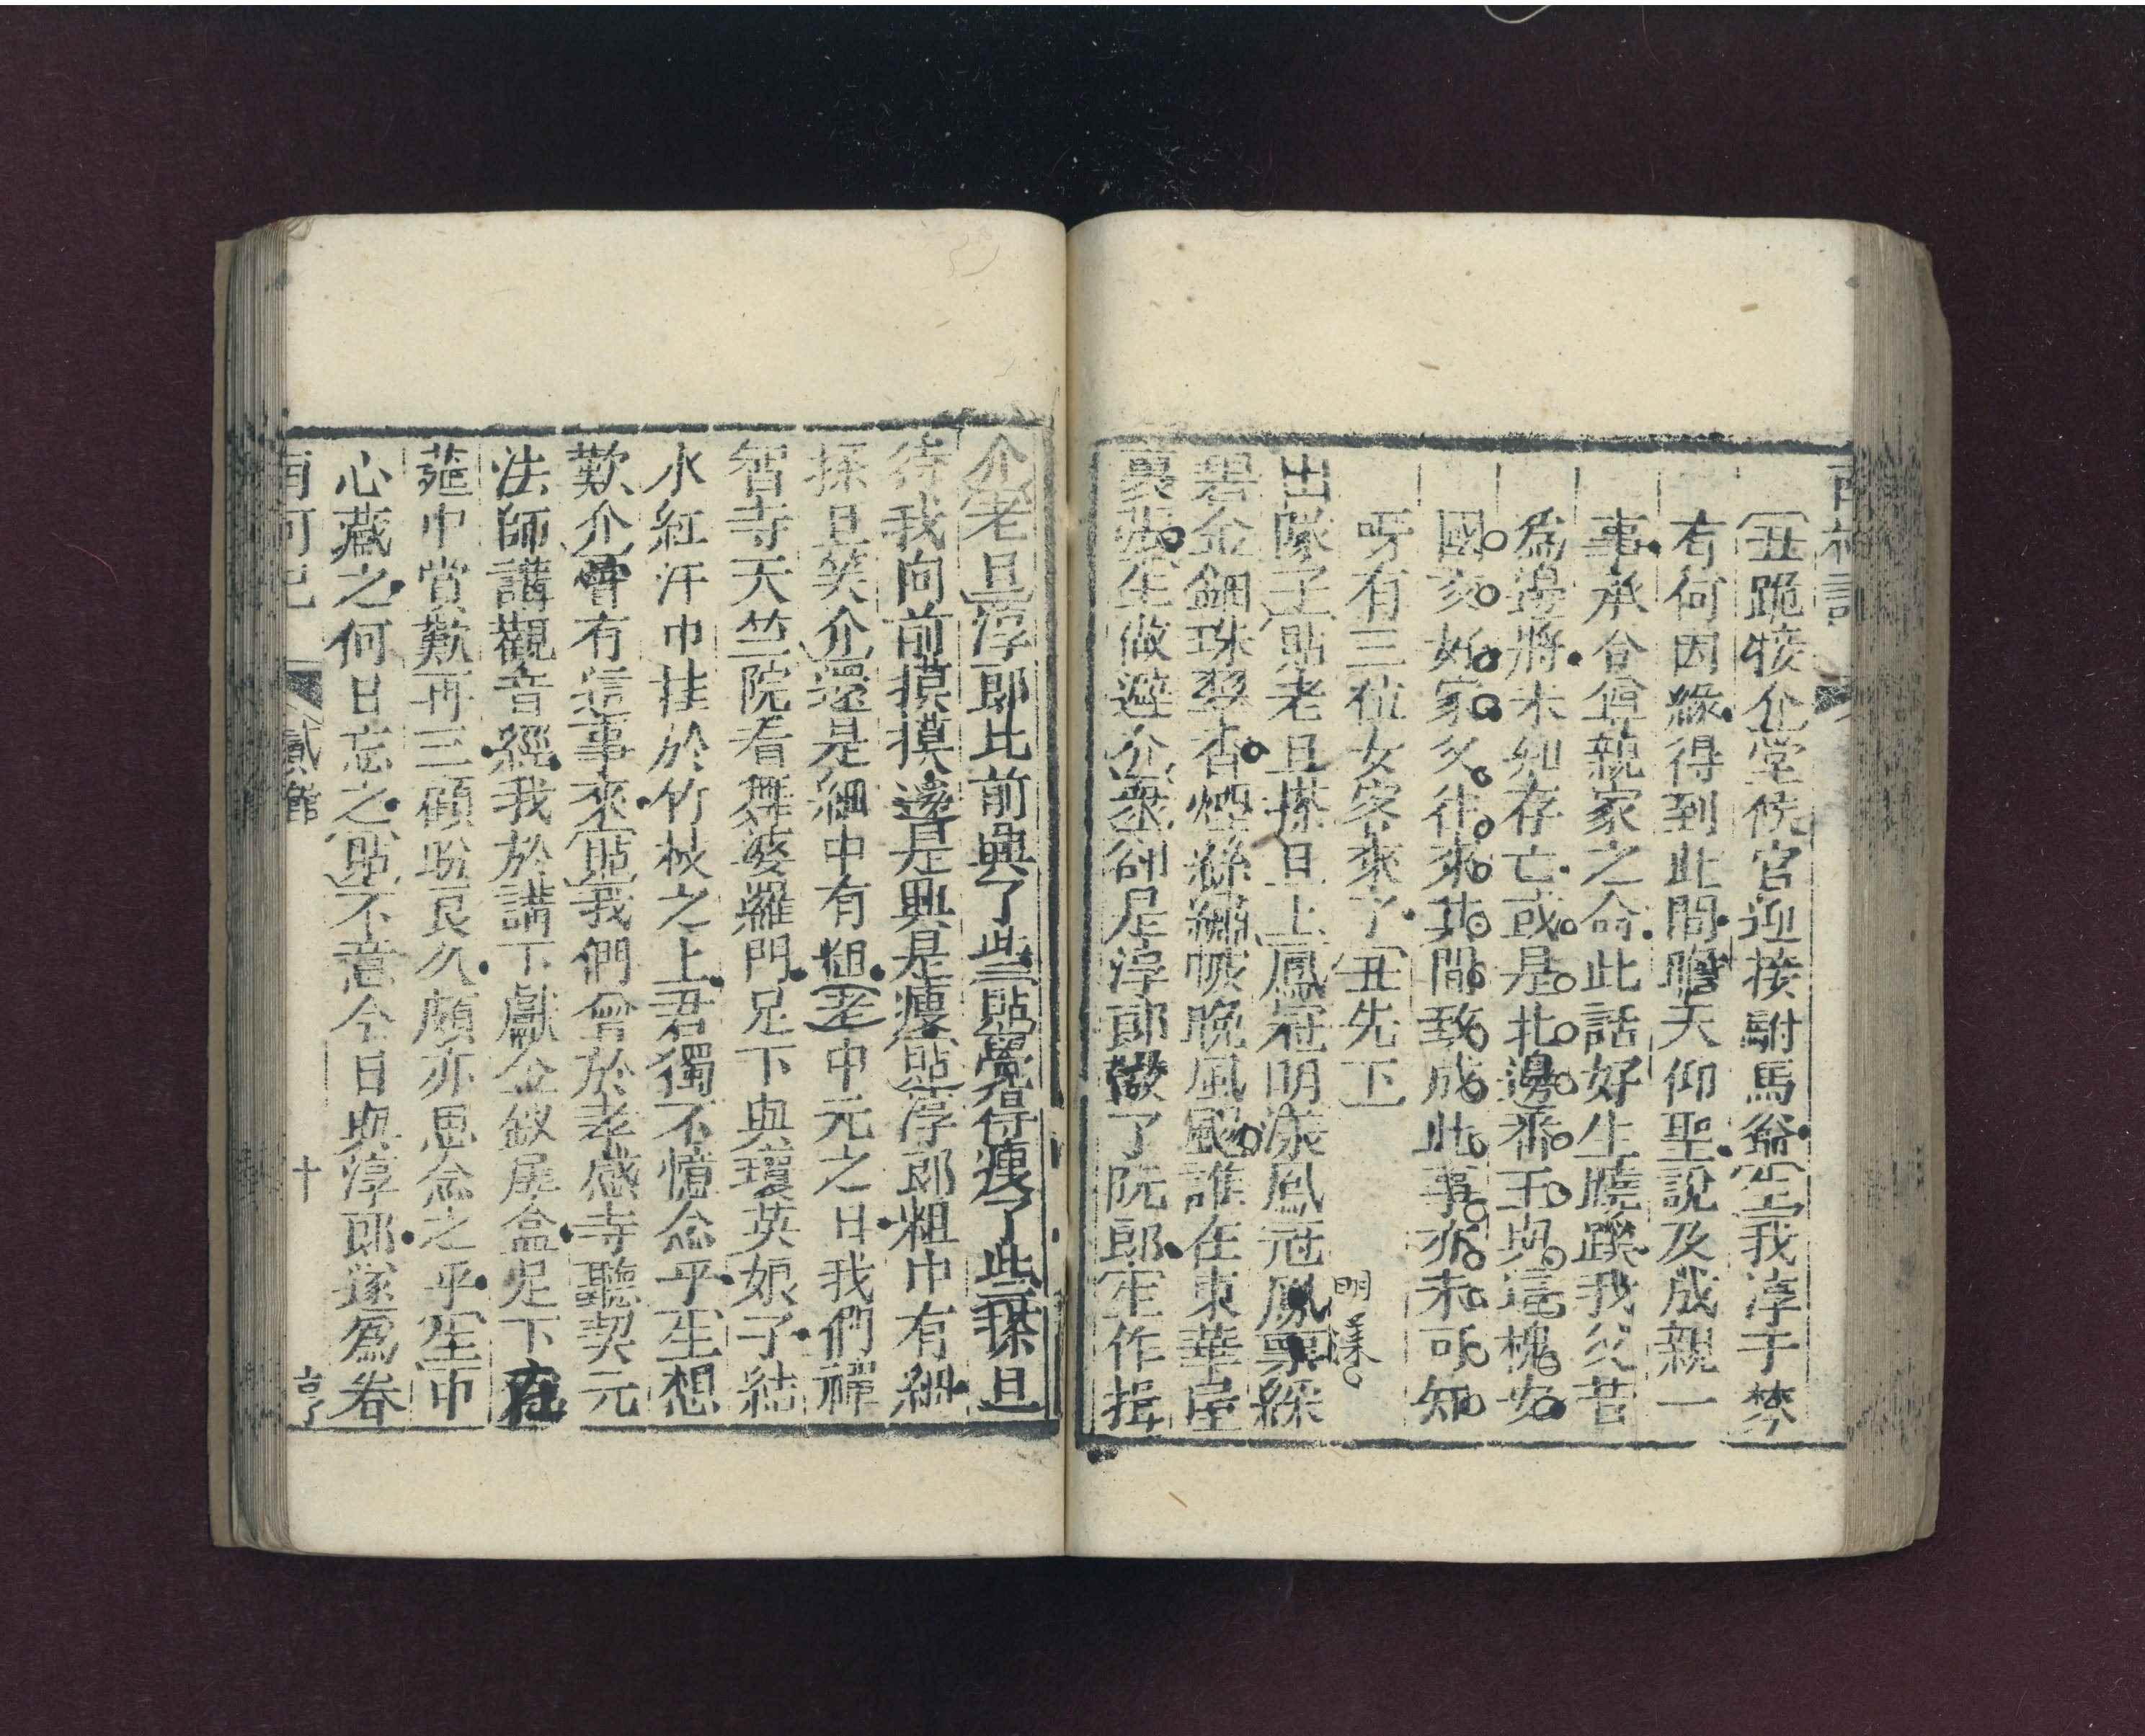 丑跪接介堂候官迎接駙馬爺生我淳于棼
有何因緣得到此間瞻天仰聖說及成親一
事承公宣親家之命此話好生曉蹊我父昔
為邊將未知存亡或是北邊番王與這槐安
國交好家父往來其間致成此事亦未可知
呀有三位女客來了丑先下
明漾
出隊子貼老旦探旦上鳳冠明漾鳳冠鳳票綵
碧金鈿珠翠香煙絲繡帔晚風颸誰在東華屋
裏藏生做避介眾卻是淳郎做了阮郎生作揖
介老旦淳郎比前興了些貼覺得瘦了些探旦
待我向前摸摸還是興是瘦貼淳郎粗中有細
探旦笑介還是細中有粗老中元之日我們禪
智寺天竺院看舞婆羅門足下與瓊英娘子結
水紅汗巾挂於竹枝之上君獨不憶念乎生想
歎介曾有這事來貼我們曾於孝感寺聽契元
法師講觀音經我於講下獻金釵犀盒足下在
筵中賞歎再三顧盼良久頗亦思念之乎生中
心藏之何日忘之貼不意今日與淳郎遂為眷
南柯記 貳館 十